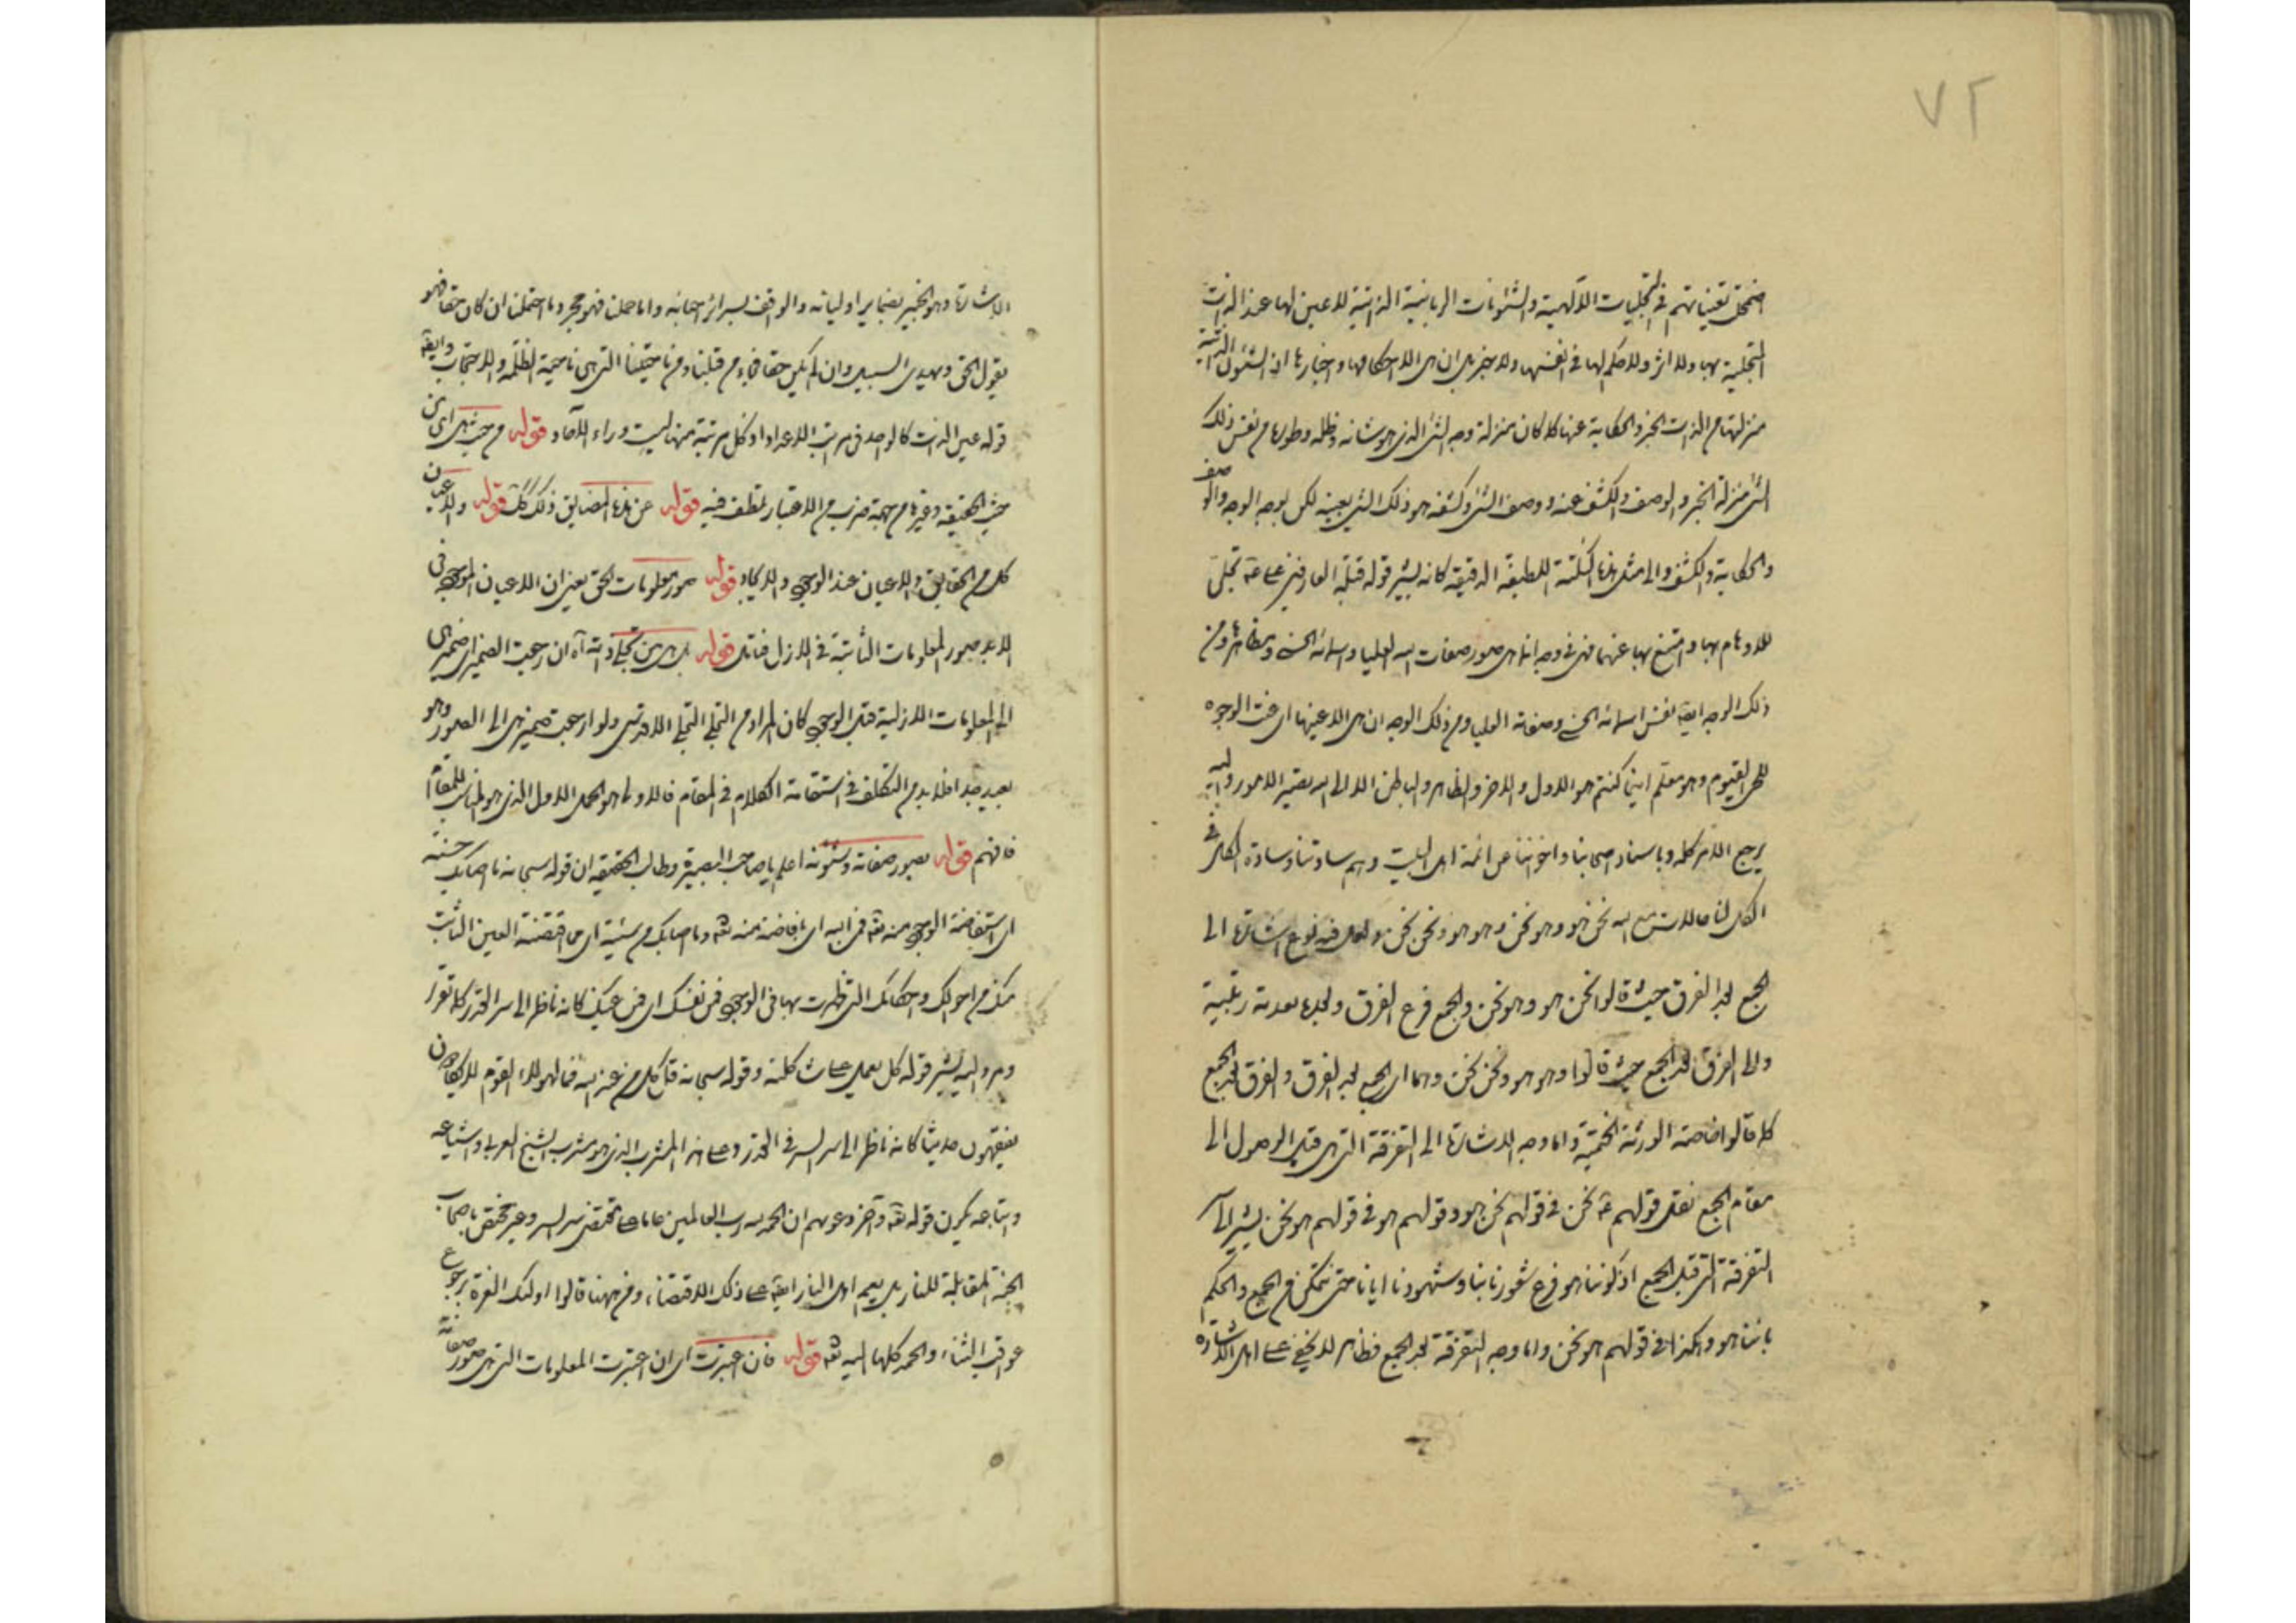 ٧٢
اضمحل تعيناتهم في التجليات الآلهية والشئونات الربانية الذاتية لا عين لها عند الذات
المتجلية بها ولا اثر ولا حكم لها في انفسها ولا خبر بل ان هي الا حكامها واخبارها اذ الشئون الذاتية
منزلتها من الذات الخبر والحكاية عنها كلا كان منزلة وجه الشئ الذي هو شانه وظله وطوره من نفس ذلك
الشئ منزلة الخبر والوصف والكشف عنه ووصف الشئ وكشفه هو ذلك الشئ بعينه لكن بوجه الوجه والوصف
والحكاية والكشف والى مثل هذا النكتة اللطيفة الدقيقة كانه يشير قوله قبلة العارفين على ع تجلى
للاوهام بها وامتنع بها عنها فهي في وجه انما هي صور صفات الله العليا واسمائه الحسنى ومظاهرها ومن
ذلك الوجه ايضا نفس اسمائه الحسنى وصفاته العليا ومن ذلك الوجه ان هي الا عينها اى عنت الوجوه
للحى القيوم وهو معكم اينما كنتم هو الاول والاخر والظاهر والباطن الا الى الله تصير الامور واليه
يرجع الامر كله وباسناد اصحابنا واخواننا عن ائمة اهل البيت وهم سادتنا وسادة الكل في
الكل لنا حالات مع الله نحن هو وهو نحن وهو هو ونحن نحن ولعل فيه نوع اشارة الى
الجمع بعد الفرق حيث قالوا نحن هو وهو نحن والجمع فرع الفرق وبعده بعدية رتبية
والى الفرق بعد الجمع حيث قالوا وهو هو ونحن نحن وهما اى الجمع بعد الفرق والفرق بعد الجمع
كما قالوا خاصة الورثة الختمية واما وجه الاشارة الى التفرقة التي هي قبل الوصول الى
مقام الجمع نفى قولهم ع نحن في قولهم نحن هو وقولهم هو في قولهم هو نحن يشير الى
التفرقة التي قبل الجمع اذ كوننا هو فرع شعورنا بنا وشهودنا ايانا حتى نتمكن من الجمع والحكم
باننا هو وهكذا في قولهم هو نحن واما وجه التفرقة بعد الجمع فظاهر لا يخفى على اهل الاشارة
الاشارة وهو الخبير بضماير اوليائه والواقف بسرائر احبائه واما حملنا فهو مجرد ما احتملنا ان كان حقا فهو
يقول الحق ويهدى السبيل وان لم يكن حقا فجاء من قبلنا ومن ناحيتنا التي هي ناحية الظلمة والاحتجاب وايضا
قوله عين الذات كالواحد في مراتب الاعداد او كل مرتبة منها ليست وراء الآحاد قوله من حيث هي اى من
حيث الحقيقة وغيرها من جهة ضرب من الاعتبار تلطف فيه قوله عن هذا المضايق ذلك كك قوله والاعيان
كل من الحقايق والاعيان عند الوجود والايجاد قوله صور معلومات الحق يعني ان الاعيان الموجودة في
الابد صور المعلومات الثابتة في الازل فتامل قوله بل هي عين تجلى ذاته آه ان رجعت الضمير اى ضمير هى
الى المعلومات الازلية قبل الوجود كان المراد من التجلى التجلى الاقدس ولو ارجعت ضمير هى الى الصور وهو
بعيد جدا فلا بد من التكلف في استقامة الكلام في المقام فالاولى هو الحمل الاول الذي هو المناسب للمقام
فافهم قوله بصور صفاته وشئونه اعلم يا صاحب البصيرة وطالب الحقيقة ان قوله سبحانه ما اصابك من حسنة
اى استفاضة الوجود منه تعه فمن الله اى بافاضة منه تعه وما اصابك من سيئة اى ما اقتضته العين الثابت
منك من احوالك واحكامك التي ظهرت بها في الوجود فمن نفسك اى فمن عينك كانه ناظر الى سر القدر كما تقرر
ومر واليه يشير قوله كل يعمل على شاكلته وقوله سبحانه قل كل من عند الله فما لهؤلاء القوم لا يكادون
يفقهون حديثا كانه ناظر الى سر السر في القدر وعلى هذا المشرب الذي هو مشرب الشيخ العربي واشياعه
واتباعه يكون قوله تعه وآخر دعويهم ان الحمد لله رب العالمين عاما على مقتضى سر السر وغير مختص باصحاب
الجنة المقابلة للنار بل يعم اهل النار ايضا على ذلك الاقتضاء ومن ههنا قالوا اولئك الفرة برجوع
عواقب الثناء والحمد كلها اليه تعه قوله فان اعتبرت اى ان اعتبرت المعلومات التي هي صور صفاته